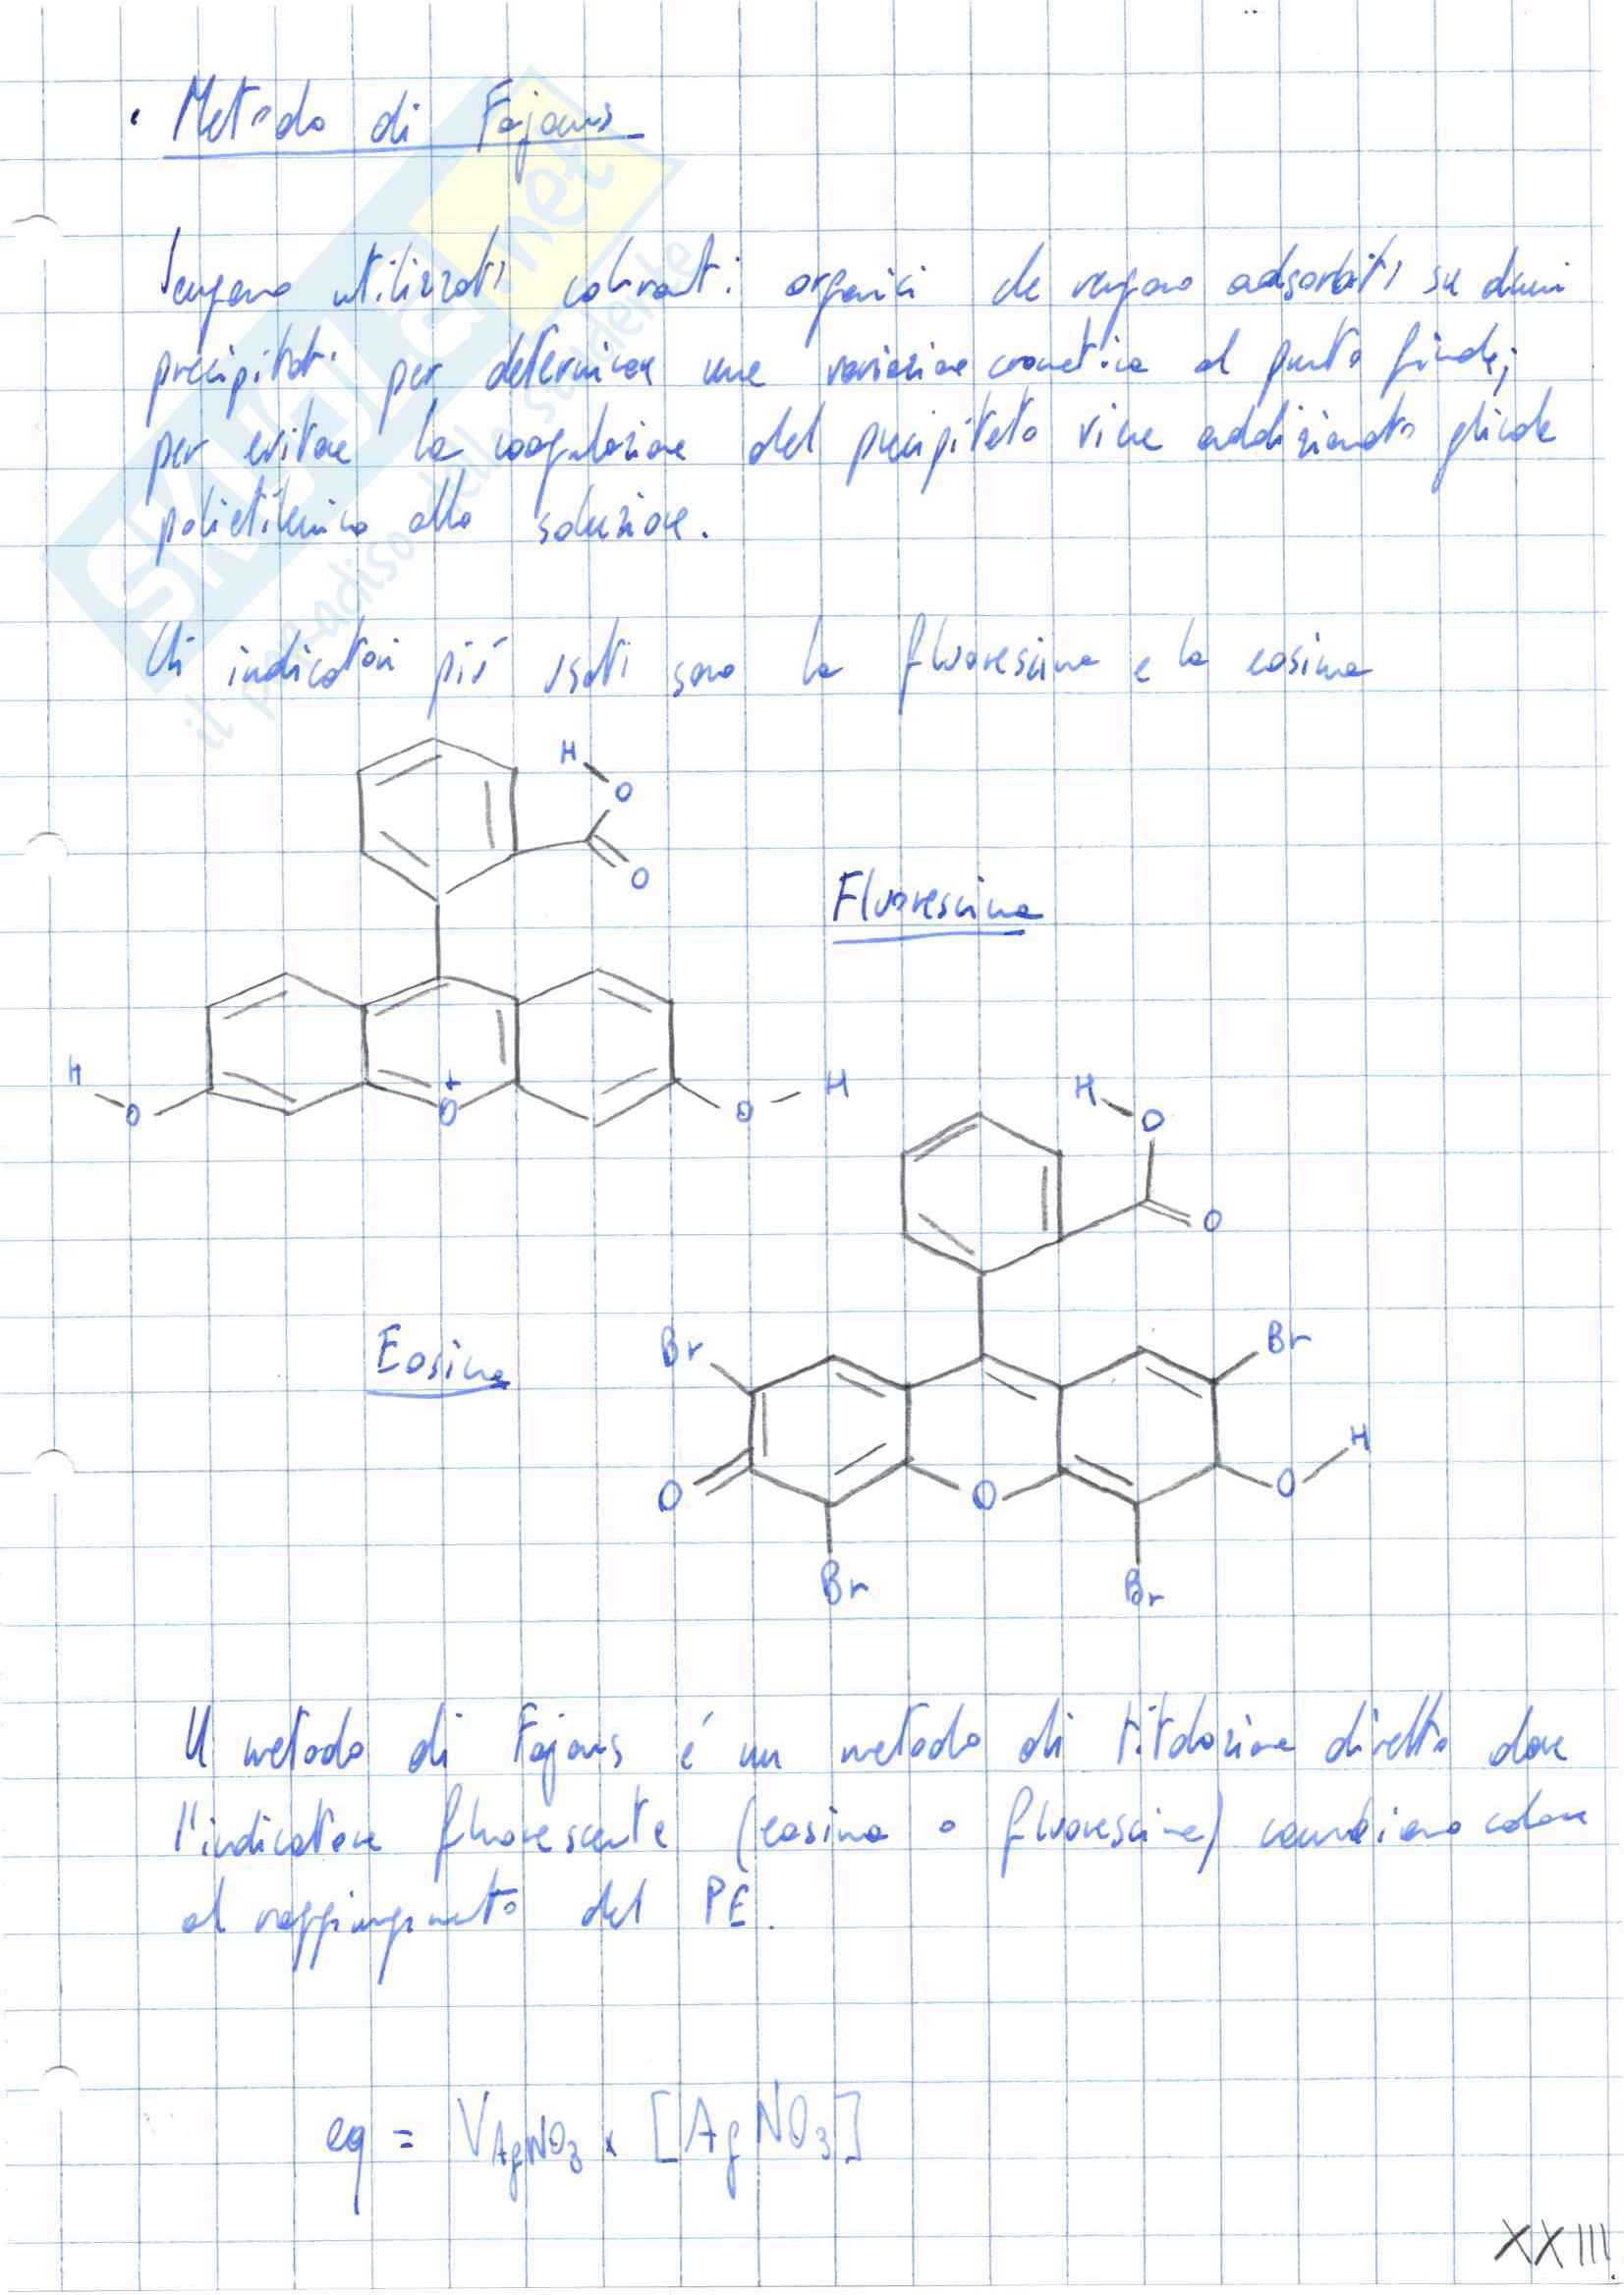 · Metodo di Fajans
Vengono utilizzati coloranti organici che vengono adsorbiti su alcuni
precipitati per determinare una variazione cromatica al punto finale;
per evitare la coagulazione del precipitato viene addizionato glicole
polietilenico alla soluzione.
Gli indicatori più usati sono la fluoresceina e la eosina
H
O
O
Fluoresceina
H
O
O+
O
H
H
O
O
Eosina
Br
Br
O
O
O
H
Br
Br
Il metodo di Fajans é un metodo di titolazione diretto dove
l'indicatore fluorescente (eosina o fluoresceina) cambiano colore
al raggiungimento del PE.
eq = V AgNO3 x [AgNO3]
XXIII
SKUOLA.net
il paradiso dello studente